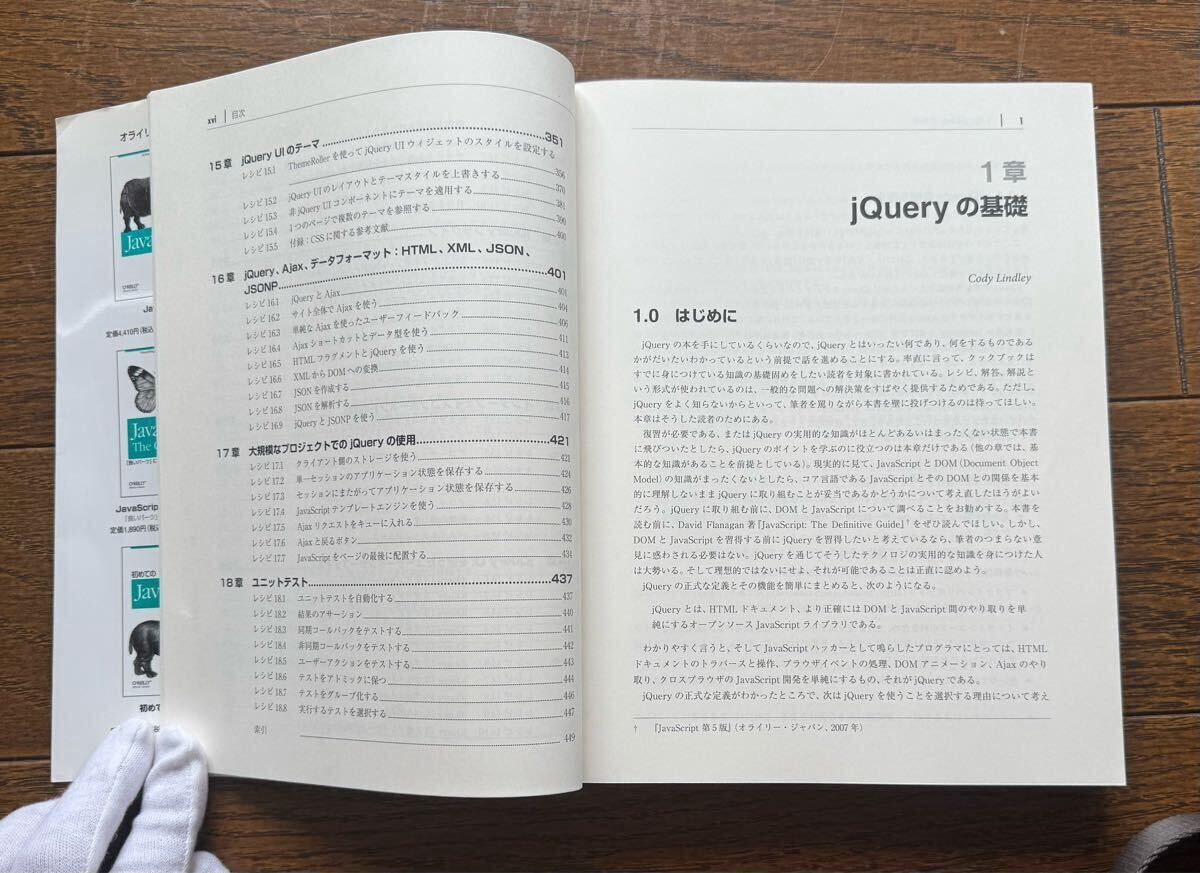 オライリ
Java
O'REILLY
Jav
定価4,410円(税込
Java
The G
「良いパーツ」に
O'REILLY
JavaScript
「良いパーツ」
定価1,890円(税込
初めての
Java
O'REILLY
初めて
xvi 目次
15章 jQuery UIのテーマ 351
レシピ 15.1 ThemeRollerを使ってjQuery UIウィジェットのスタイルを設定する
356
レシピ 15.2 jQuery UIのレイアウトとテーマスタイルを上書きする 370
レシピ 15.3 非jQuery UIコンポーネントにテーマを適用する 381
レシピ 15.4 1つのページで複数のテーマを参照する 390
レシピ 15.5 付録：CSSに関する参考文献 400
16章 jQuery、Ajax、データフォーマット：HTML、XML、JSON、
JSONP 401
レシピ 16.1 jQueryとAjax 401
レシピ 16.2 サイト全体でAjaxを使う 404
レシピ 16.3 単純なAjaxを使ったユーザーフィードバック 406
レシピ 16.4 Ajaxショートカットとデータ型を使う 411
レシピ 16.5 HTMLフラグメントとjQueryを使う 413
レシピ 16.6 XMLからDOMへの変換 414
レシピ 16.7 JSONを作成する 415
レシピ 16.8 JSONを解析する 416
レシピ 16.9 jQueryとJSONPを使う 417
17章 大規模なプロジェクトでのjQueryの使用 421
レシピ 17.1 クライアント側のストレージを使う 421
レシピ 17.2 単一セッションのアプリケーション状態を保存する 424
レシピ 17.3 セッションにまたがってアプリケーション状態を保存する 426
レシピ 17.4 JavaScriptテンプレートエンジンを使う 428
レシピ 17.5 Ajaxリクエストをキューに入れる 430
レシピ 17.6 Ajaxと戻るボタン 432
レシピ 17.7 JavaScriptをページの最後に配置する 434
18章 ユニットテスト 437
レシピ 18.1 ユニットテストを自動化する 437
レシピ 18.2 結果のアサーション 440
レシピ 18.3 同期コールバックをテストする 441
レシピ 18.4 非同期コールバックをテストする 442
レシピ 18.5 ユーザーアクションをテストする 443
レシピ 18.6 テストをアトミックに保つ 444
レシピ 18.7 テストをグループ化する 446
レシピ 18.8 実行するテストを選択する 447
索引 449
1
1章
jQueryの基礎
Cody Lindley
1.0 はじめに
jQueryの本を手にしているくらいなので、jQueryとはいったい何であり、何をするものである
かがだいたいわかっているという前提で話を進めることにする。率直に言って、クックブックは
すでに身につけている知識の基礎固めをしたい読者を対象に書かれている。レシピ、解答、解説と
いう形式が使われているのは、一般的な問題への解決策をすばやく提供するためである。ただし、
jQueryをよく知らないからといって、筆者を罵りながら本書を壁に投げつけるのは待ってほしい。
本章はそうした読者のためにある。
復習が必要である、またはjQueryの実用的な知識がほとんどあるいはまったくない状態で本書
に飛びついたとしたら、jQueryのポイントを学ぶのに役立つのは本章だけである（他の章では、基
本的な知識があることを前提としている）。現実的に見て、JavaScriptとDOM（Document Object
Model）の知識がまったくないとしたら、コア言語であるJavaScriptとそのDOMとの関係を基本
的に理解しないままjQueryに取り組むことが妥当であるかどうかについて考え直したほうがよい
だろう。jQueryに取り組む前に、DOMとJavaScriptについて調べることをお勧めする。本書を
読む前に、David Flanagan著『JavaScript: The Definitive Guide』†をぜひ読んでほしい。しかし、
DOMとJavaScriptを習得する前にjQueryを習得したいと考えているなら、筆者のつまらない意
見に惑わされる必要はない。jQueryを通じてそうしたテクノロジの実用的な知識を身につけた人
は大勢いる。そして理想的ではないにせよ、それが可能であることは正直に認めよう。
jQueryの正式な定義とその機能を簡単にまとめると、次のようになる。
jQueryとは、HTMLドキュメント、より正確にはDOMとJavaScript間のやり取りを単
純にするオープンソースJavaScriptライブラリである。
わかりやすく言うと、そしてJavaScriptハッカーとして鳴らしたプログラマにとっては、HTML
ドキュメントのトラバースと操作、ブラウザイベントの処理、DOMアニメーション、Ajaxのやり
取り、クロスブラウザのJavaScript開発を単純にするもの、それがjQueryである。
jQueryの正式な定義がわかったところで、次はjQueryを使うことを選択する理由について考え
† 『JavaScript 第5版』（オライリー・ジャパン、2007年）